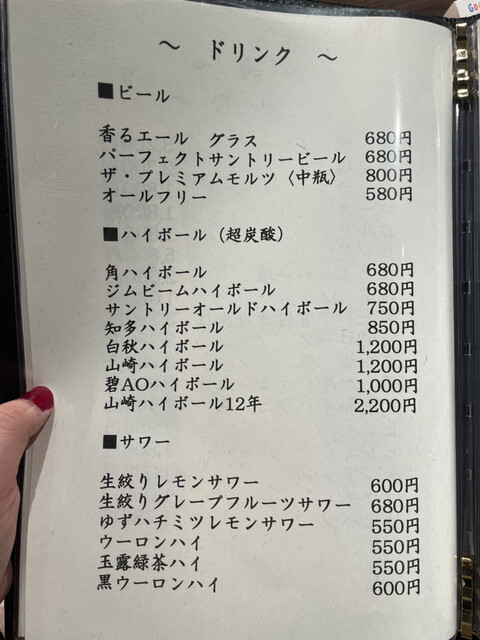 ～ ドリンク ～
■ビール
香るエール グラス 680円
パーフェクトサントリービール 680円
ザ・プレミアムモルツ〈中瓶〉 800円
オールフリー 580円
■ハイボール（超炭酸）
角ハイボール 680円
ジムビームハイボール 680円
サントリーオールドハイボール 750円
知多ハイボール 850円
白秋ハイボール 1,200円
山崎ハイボール 1,200円
碧AOハイボール 1,000円
山崎ハイボール12年 2,200円
■サワー
生絞りレモンサワー 600円
生絞りグレープフルーツサワー 680円
ゆずハチミツレモンサワー 550円
ウーロンハイ 550円
玉露緑茶ハイ 550円
黒ウーロンハイ 600円